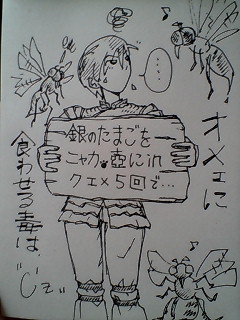 ....
銀のたまごを
ニャカ。壺にin
クエ×5回で…
オメェに
食わせる毒は